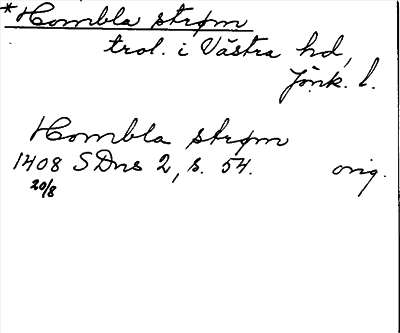 *Hombla strøm
trol. i Västra hd,
Jönk. l.
Hombla strøm
1408 SDns 2, s. 54. orig.
20/8